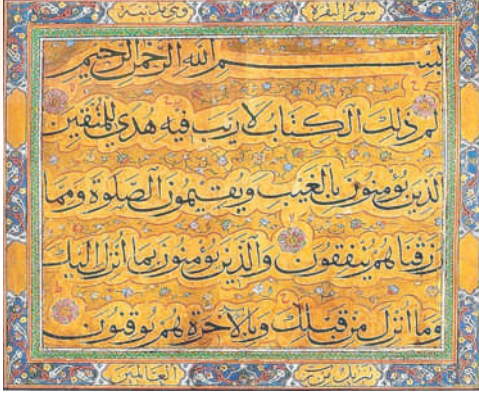 سورة البقرة وهي مدنية
بسم الله الرحمن الرحيم
الم ذلك الكتاب لا ريب فيه هدى للمتقين
الذين يؤمنون بالغيب ويقيمون الصلوة ومما
رزقناهم ينفقون والذين يؤمنون بما انزل اليك
وما انزل من قبلك وبالآخرة هم يوقنون
تنزيل من رب العالمين